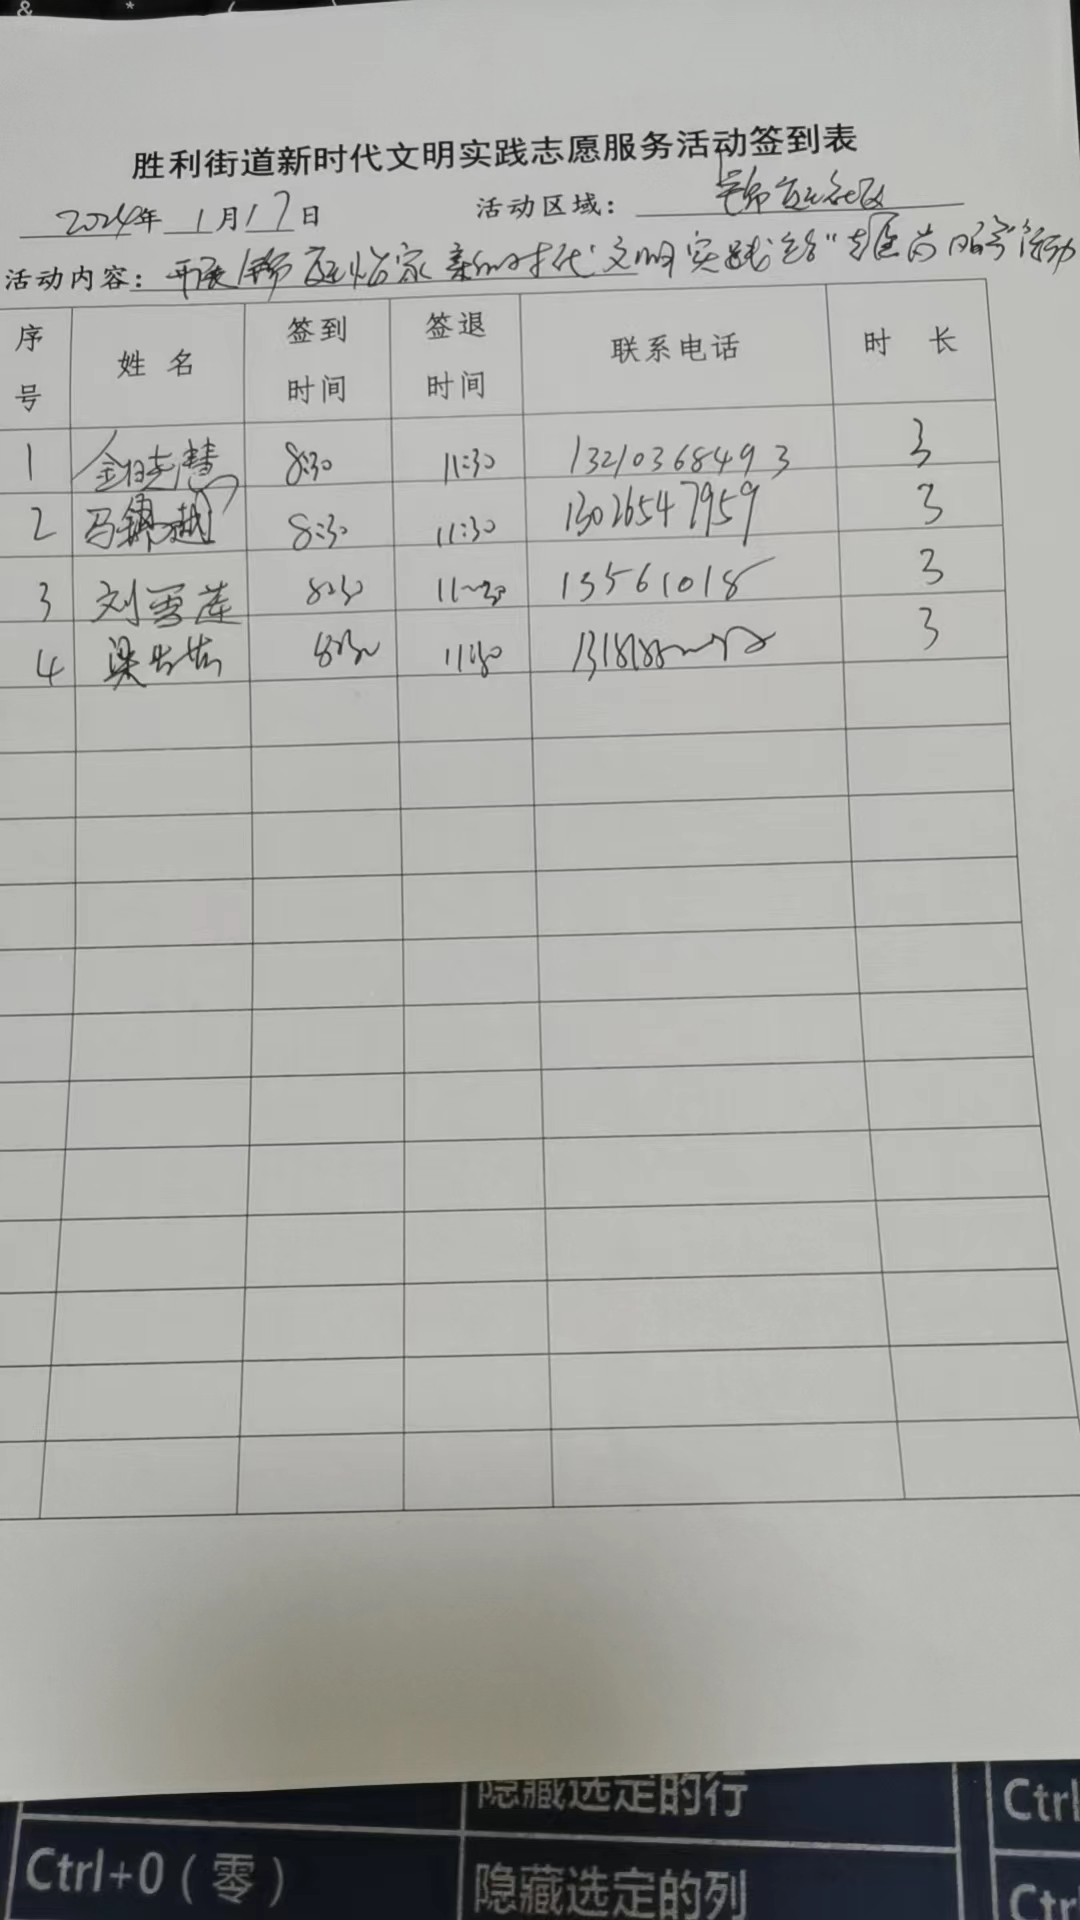 & * (
胜利街道新时代文明实践志愿服务活动签到表
2024年 1月17日 活动区域: 锦庭社区
活动内容: 开展锦庭怡家新时代文明实践站" 服务"活动
序号 姓名 签到时间 签退时间 联系电话 时长
1 金晓慧 8:30 11:30 13210368493 3
2 马锦越 8:30 11:30 13026547959 3
3 刘雪莲 8:30 11:30 13561018 3
4 梁 8:30 11:30 3
隐藏选定的行 Ctrl
Ctrl+0(零) 隐藏选定的列 Ctr